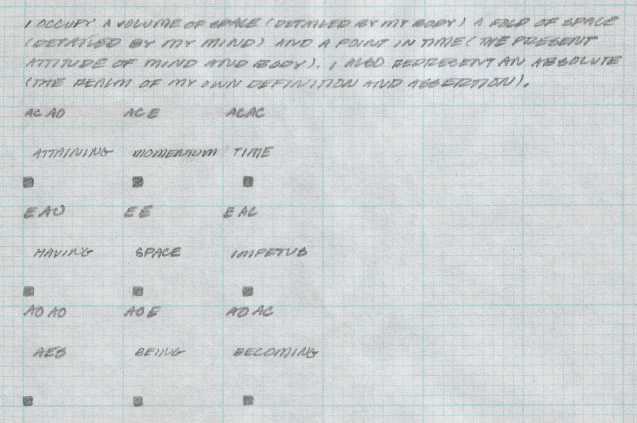 I OCCUPY A VOLUME OF SPACE (DETAILED BY MY BODY) A FOLD OF SPACE
(DETAILED BY MY MIND) AND A POINT IN TIME (THE PRESENT
ATTITUDE OF MIND AND BODY). I ALSO REPRESENT AN ABSOLUTE
(THE REALM OF MY OWN DEFINITION AND ASSERTION).
AC AO ACE ACAC
ATTAINING MOMENTUM TIME
EAO EE EAC
HAVING SPACE IMPETUS
AO AO AOE AO AC
BEING BECOMING